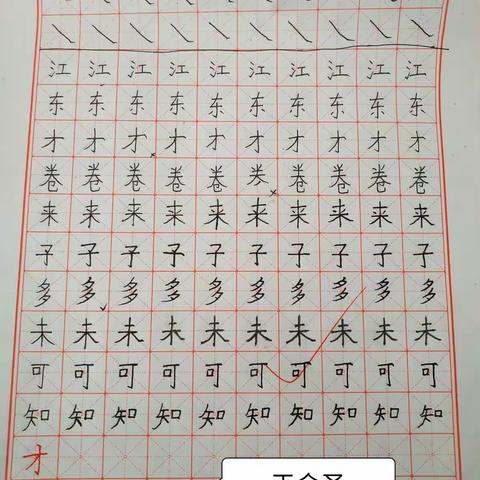 江江江江江江江江江江
东东东东东东东东东东
才才才才才才才才才才
卷卷卷卷卷卷卷卷卷
来来来来来来来来来来
子子子子子子子子子子
多多多多多多多多多多
未未未未未未未未未未
可可可可可可可可可可
知知知知知知知知知知
才